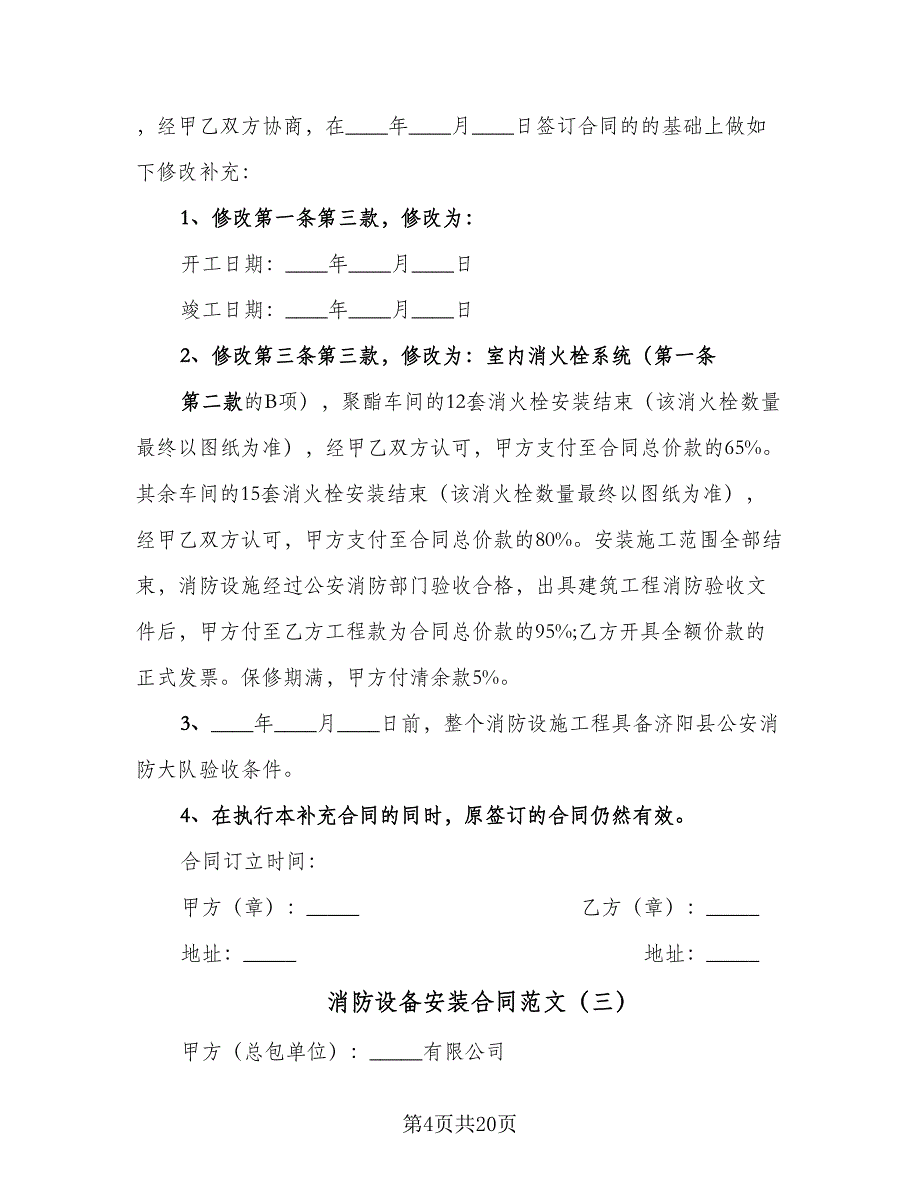 ，经甲乙双方协商，在____年____月____日签订合同的的基础上做如
下修改补充：
1、修改第一条第三款，修改为：
开工日期：____年____月____日
竣工日期：____年____月____日
2、修改第三条第三款，修改为：室内消火栓系统（第一条
第二款的B项），聚酯车间的12套消火栓安装结束（该消火栓数量
最终以图纸为准），经甲乙双方认可，甲方支付至合同总价款的65%。
其余车间的15套消火栓安装结束（该消火栓数量最终以图纸为准），
经甲乙双方认可，甲方支付至合同总价款的80%。安装施工范围全部结
束，消防设施经过公安消防部门验收合格，出具建筑工程消防验收文
件后，甲方付至乙方工程款为合同总价款的95%;乙方开具全额价款的
正式发票。保修期满，甲方付清余款5%。
3、____年____月____日前，整个消防设施工程具备济阳县公安消
防大队验收条件。
4、在执行本补充合同的同时，原签订的合同仍然有效。
合同订立时间：
甲方（章）：_____ 乙方（章）：_____
地址：_____ 地址：_____
消防设备安装合同范文（三）
甲方（总包单位）：_____有限公司
第4页共20页